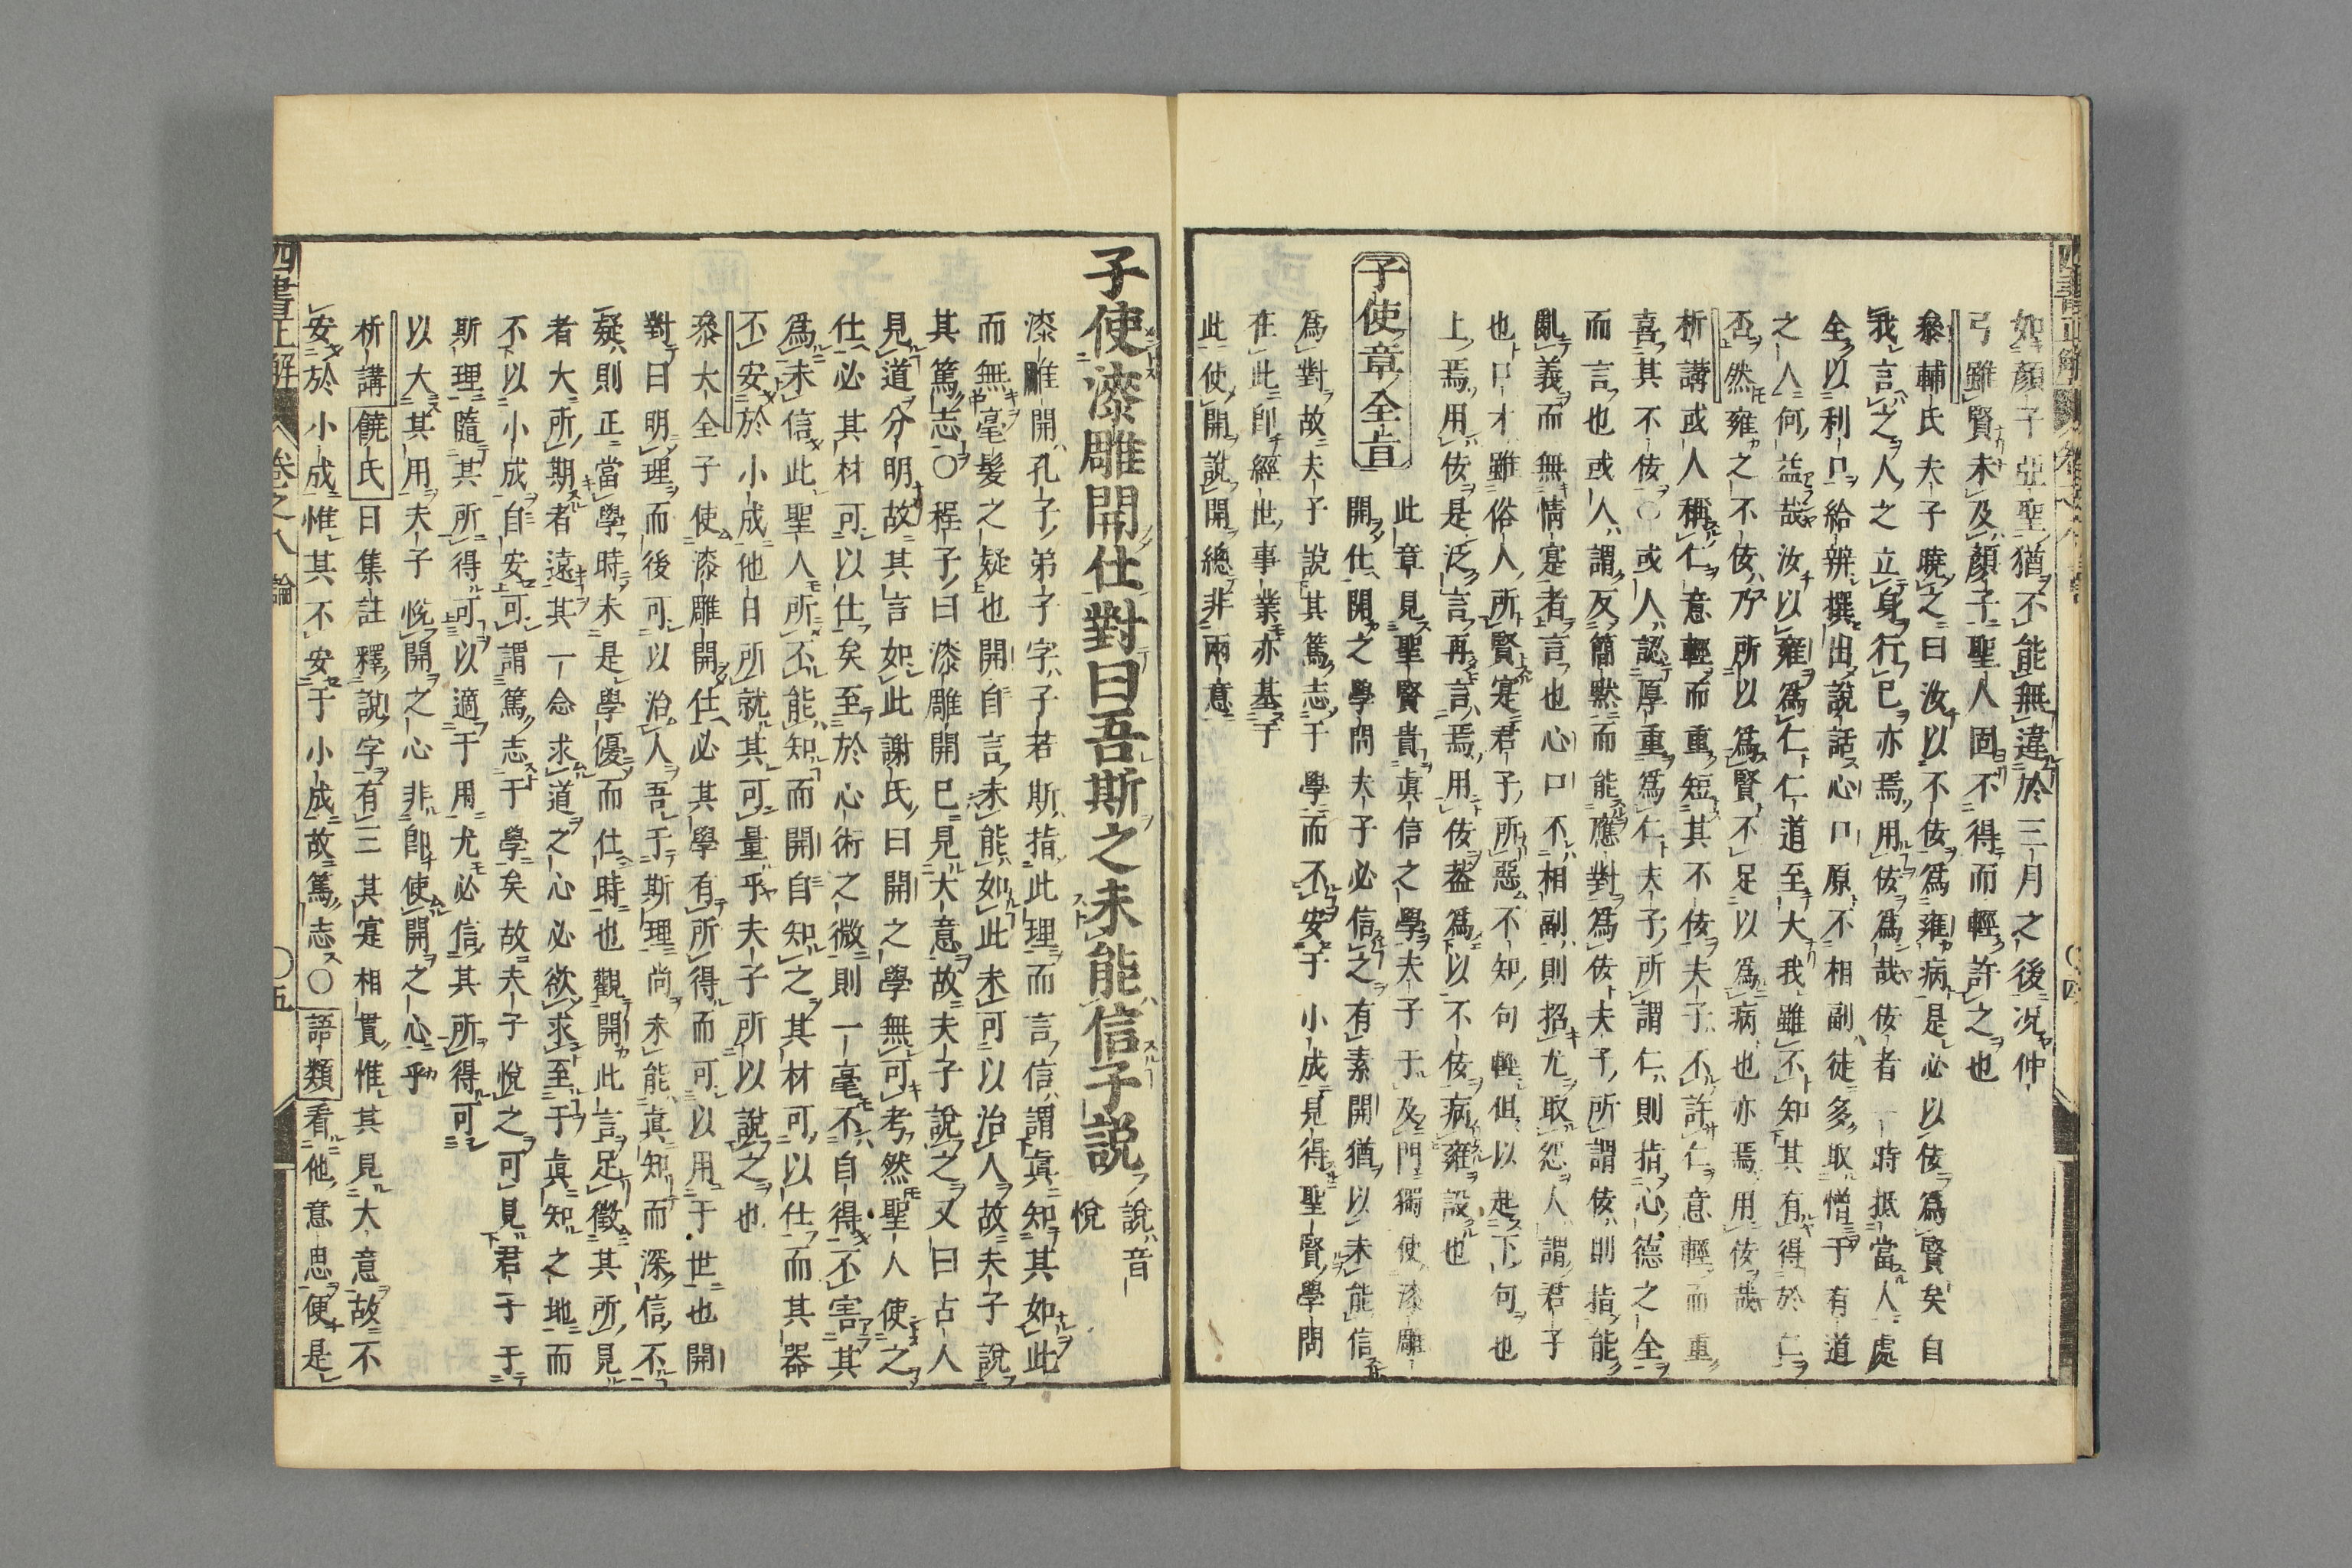 如顏子亞聖猶不能無違於三月之後況仲
弓雖賢未及顏子聖人固不得而輕許之也
叅輔氏夫子曉之曰汝以不佞爲雍病是必以佞爲賢矣自
我言之人之立身行已亦焉用佞爲哉佞者一時抵當人處
全以利口給辨撰出說話心口原不相副徒多取憎于有道
之人何益哉汝以雍爲仁仁道至大我雖不知其有得於仁
否然雍之不佞乃所以爲賢不足以爲病也亦焉用佞哉
析講或人稱仁意輕而重短其不佞夫子不許仁意輕而重
喜其不佞〇或人認厚重爲仁夫子所謂仁則指心德之全
而言也或人謂反簡默而能應對爲佞夫子所謂佞則指能
亂義而無情寔者言也心口不相副則招尤取怨人謂君子
也口才雖俗人所賢寔君子所惡不知句輕但以起下句也
上焉用佞是泛言再言焉用佞葢爲以不佞病雍設也
子使章全旨
此章見聖賢貴眞信之學夫子于及門獨使漆雕
開仕開之學問夫子必信之有素開猶以未能信
爲對故夫子說其篤志于學而不安于小成見得聖賢學問
在此卽經世事業亦基于
此使開說開總非兩意
子使漆雕開仕對曰吾斯之未能信子説
説音
悅
漆雕開孔子弟子字子若斯指此理而言信謂眞知其如此
而無毫髮之疑也開自言未能如此未可以治人故夫子說
其篤志〇程子曰漆雕開已見大意故夫子說之又曰古人
見道分明故其言如此謝氏曰開之學無可考然聖人使之
仕必其材可以仕矣至於心術之微則一毫不自得不害其
爲未信此聖人所不能知而開自知之其材可以仕而其器
不安於小成他日所就其可量乎夫子所以說之也
叅大全子使漆雕開仕必其學有所得而可以用于世也開
對曰明理而後可以治人吾于斯理尚未能眞知而深信不
疑則正當學時未是學優而仕時也觀開此言足徵其所見
者大所期者遠其一念求道之心必欲求至于眞知之地而
不以小成自安可謂篤志于學矣故夫子悅之可見君子于
斯理隨其所得可以適于用尤必信其所得可
以大其用夫子悅開之心非卽使開之心乎
析講饒氏曰集註釋說字有三其寔相貫惟其見大意故不
安於小成惟其不安于小成故篤志〇語類看他意思便是
四書正解
卷之八
論
〇五